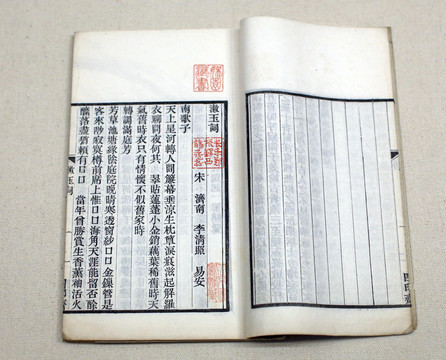 漱玉詞
宋 濟南 李清照 易安
南歌子
天上星河轉人間簾幕垂涼生枕簟淚痕滋起解羅
衣聊問夜何其 翠貼蓮蓬小金銷藕葉稀舊時天
氣舊時衣只有情懷不似舊家時
轉調滿庭芳
芳草池塘綠陰庭院晚晴寒透窗紗囗囗金鏁管是
客來唦寂寞樽前席上惟囗囗海角天涯能留否酴
醾落盡猶賴有囗囗 當年曾勝賞生香薰袖活火
漱玉詞